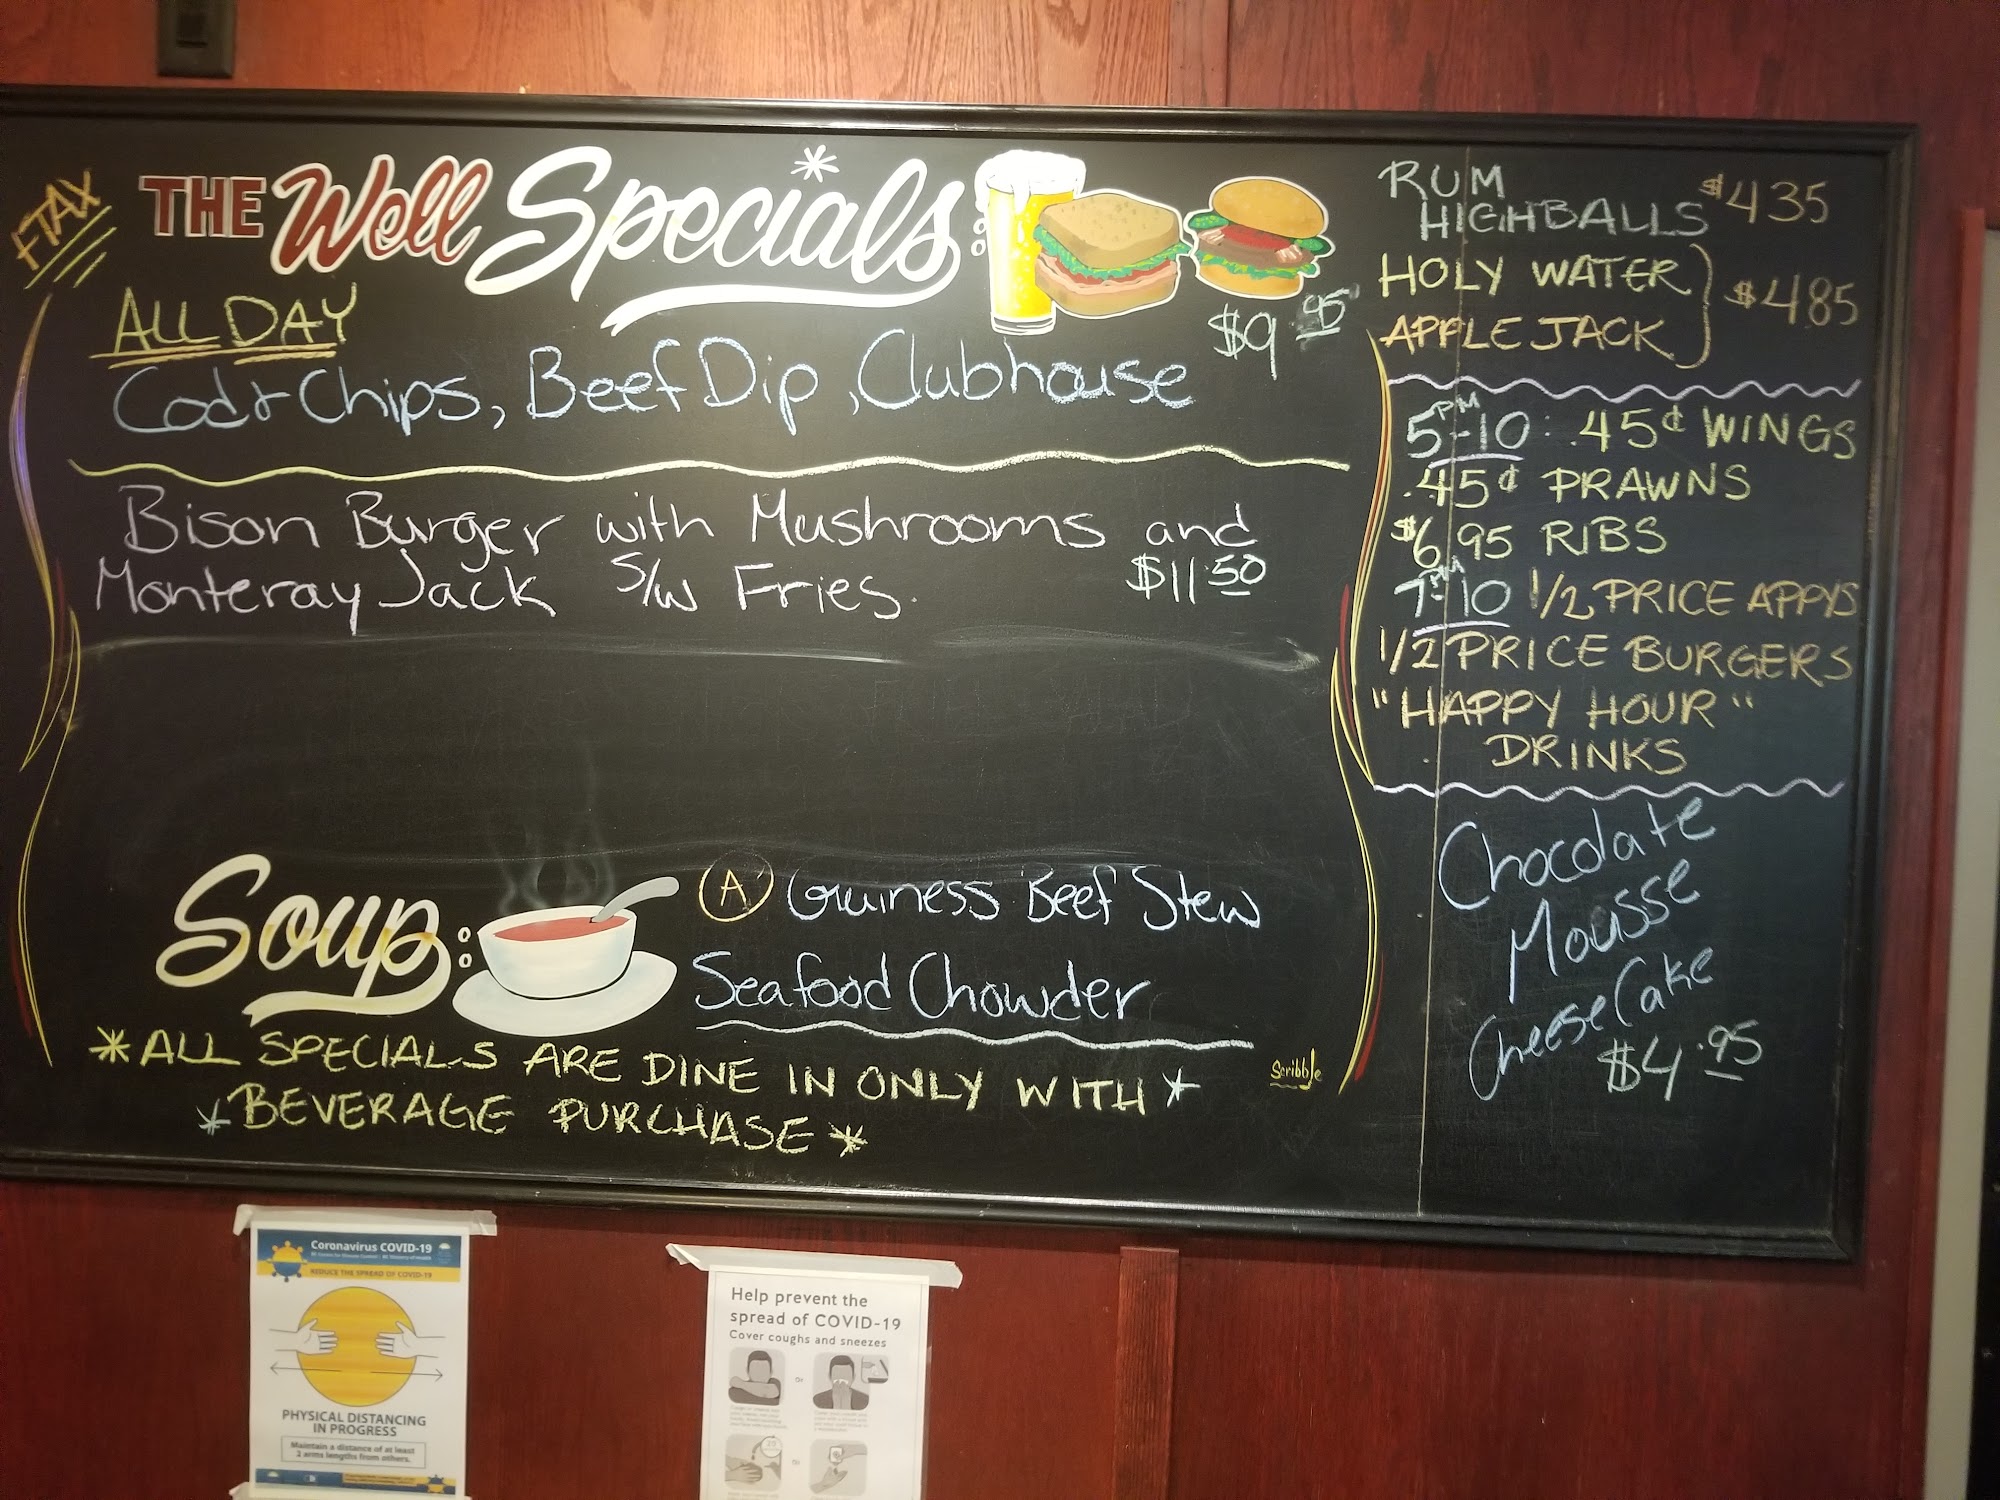 +TAX
THE Well Specials:
ALL DAY
$9.95
Cod & Chips, Beef Dip, Clubhouse
Bison Burger with Mushrooms and
Monteray Jack S/W Fries. $11.50
Soup:
(A) Guiness Beef Stew
Seafood Chowder
*ALL SPECIALS ARE DINE IN ONLY WITH*
*BEVERAGE PURCHASE*
Scribble
RUM
HIGHBALLS $4.35
HOLY WATER
APPLE JACK } $4.85
5PM-10: .45¢ WINGS
.45¢ PRAWNS
$6.95 RIBS
7PM-10 1/2 PRICE APPYS
1/2 PRICE BURGERS
"HAPPY HOUR"
DRINKS
Chocolate
Mousse
CheeseCake
$4.95
Coronavirus COVID-19
REDUCE THE SPREAD OF COVID-19
PHYSICAL DISTANCING
IN PROGRESS
Maintain a distance of at least
2 arms lengths from others.
Help prevent the
spread of COVID-19
Cover coughs and sneezes
or
or